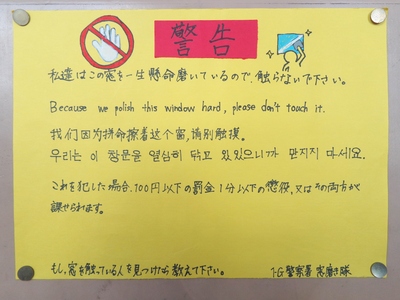 警告
私達はこの窓を一生懸命磨いているので、触らないで下さい。
Because we polish this window hard, please don't touch it.
我们因为拼命擦着这个窗,请别触摸。
우리는 이 창문을 열심히 닦고 있있으니까 만지지 마세요.
これを犯した場合、100円以下の罰金 1分以下の懲役、又はその両方が
課せられます。
もし、窓を触っている人を見つけたら教えて下さい。
1-G 警察署 窓磨き隊